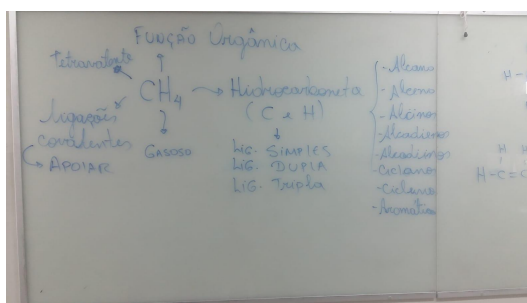 Função Orgânica
Tetravalente
CH4 → Hidrocarboneto
(C e H)
Ligações
covalentes
APOIAR
GASOSO
Lig. SIMPLES
Lig. DUPLA
Lig. Tripla
- Alcano
- Alceno
- Alcinos
- Alcadienos
- Alcadienos
- Ciclano
- Ciclano
- Aromático
H-
H H
H-C=C